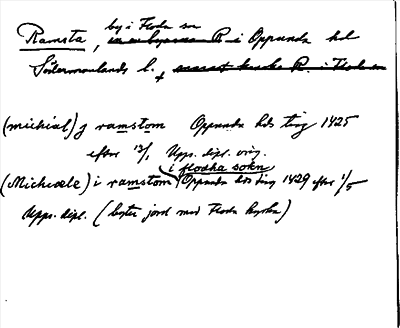 by i Floda sn
Ramsta, i Oppunda hd
Södermanlands l.
(michial) j ramstom Oppunda hds ting 1425
efter 13/1 Upps. dipl. orig.
i flodha sokn
(Michiæle) i ramstom Oppunda hds ting 1429 efter 1/5
Upps. dipl. (byter jord med Floda kyrka)